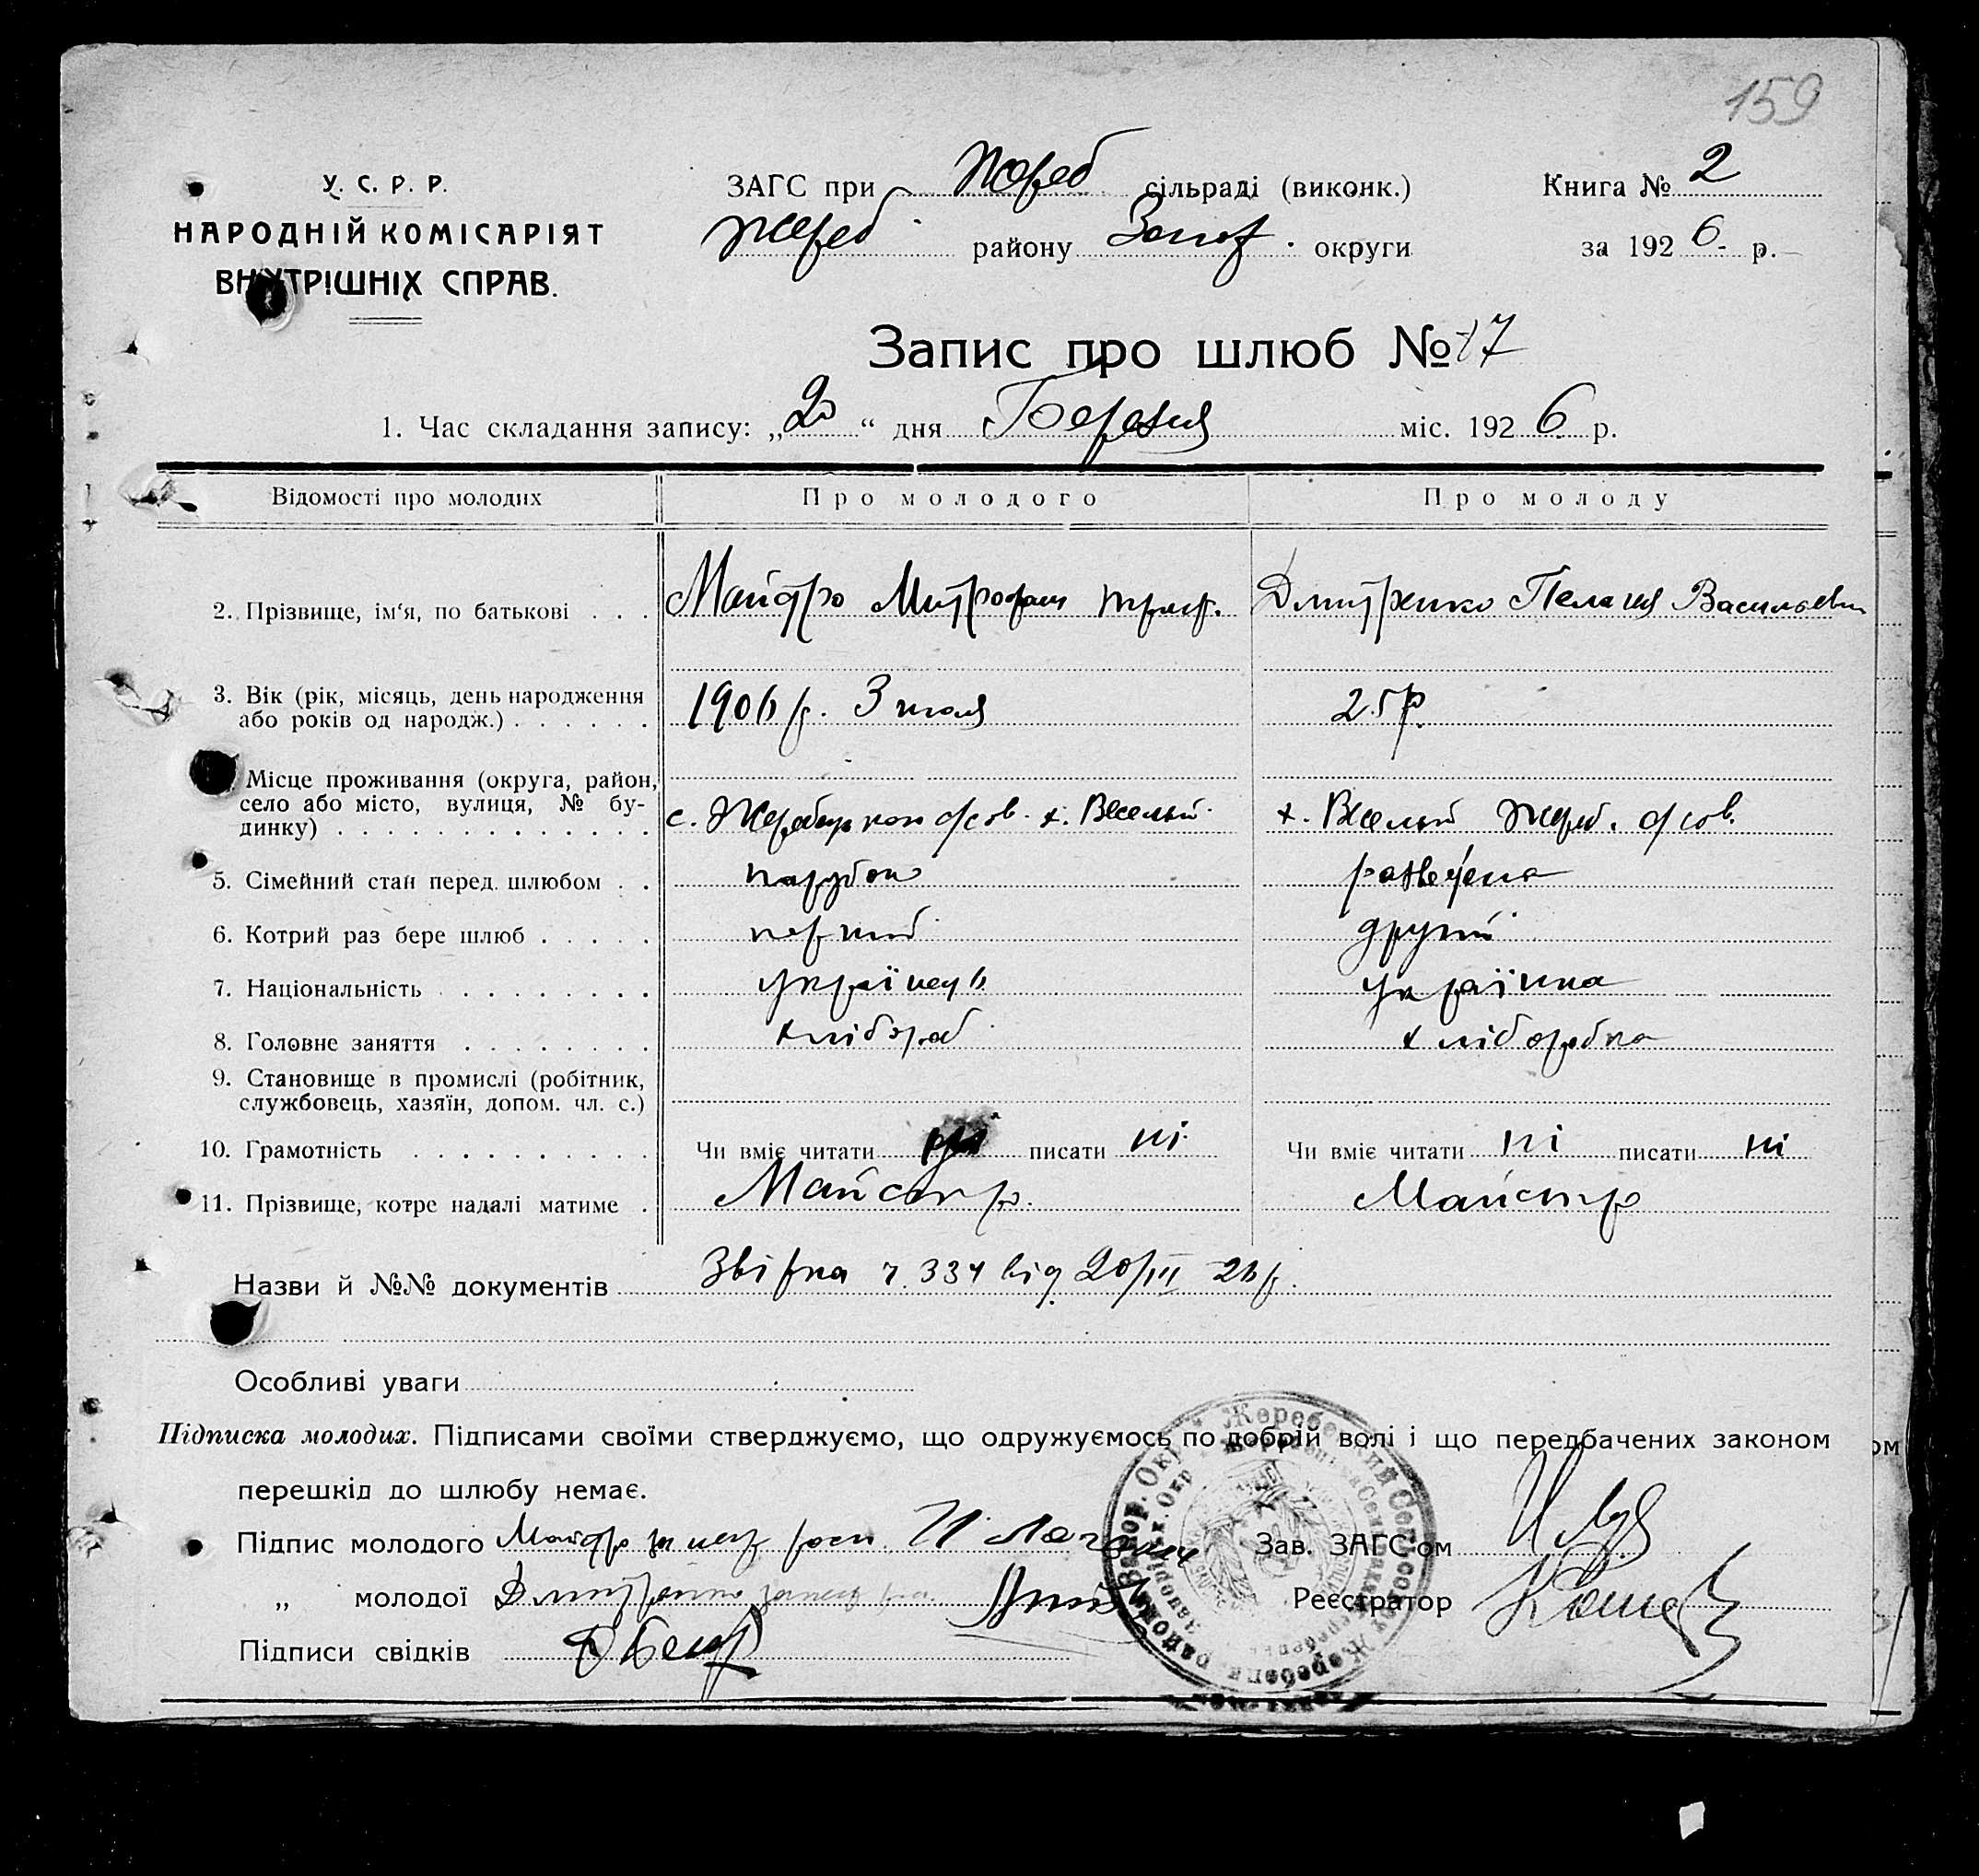 159
У. С. Р. Р.
НАРОДНІЙ КОМІСАРІЯТ
ВНУТРІШНІХ СПРАВ.
ЗАГС при Жереб сільраді (виконк.)
Жереб. району Запор. округи
Книга № 2
за 1926 р.
Запис про шлюб № 17
1. Час складання запису: „20“ дня Березня міс. 1926 р.
Відомості про молодих Про молодого Про молоду
2. Прізвище, ім‘я, по батькові . . . Майстро Митрофан Дмитренко Пелагия Васильевн
3. Вік (рік, місяць, день народження
або років од народж.) . . . . . . 1906 р. 3 июля 25 р.
Місце проживання (округа, район,
село або місто, вулиця, № бу-
динку) . . . . . . . . . . . . . с. х. Веселый х. Веселый Жереб.
5. Сімейний стан перед. шлюбом . . парубок разведена
6. Котрий раз бере шлюб . . . . . перший другий
7. Національність . . . . . . . . українець українка
8. Головне заняття . . . . . . . . хлібороб хлiборобка
9. Становище в промислі (робітник,
службовець, хазяїн, допом. чл. с.)
10. Грамотність . . . . . . . . . . Чи вміє читати писати ні Чи вміє читати ні писати ні
11. Прізвище, котре надалі матиме . Майстр. Майстр
Назви й №№ документів Звірка ч. 334 від 20/III 26 р.
Особливі уваги
Підписка молодих. Підписами своїми стверджуємо, що одружуємось по добрій волі і що передбачених законом
перешкід до шлюбу немає.
Підпис молодого Майстро за негр росп.
Зав. ЗАГС'ом
„ молодої Дмитренко
Реєстратор
Підписи свідків